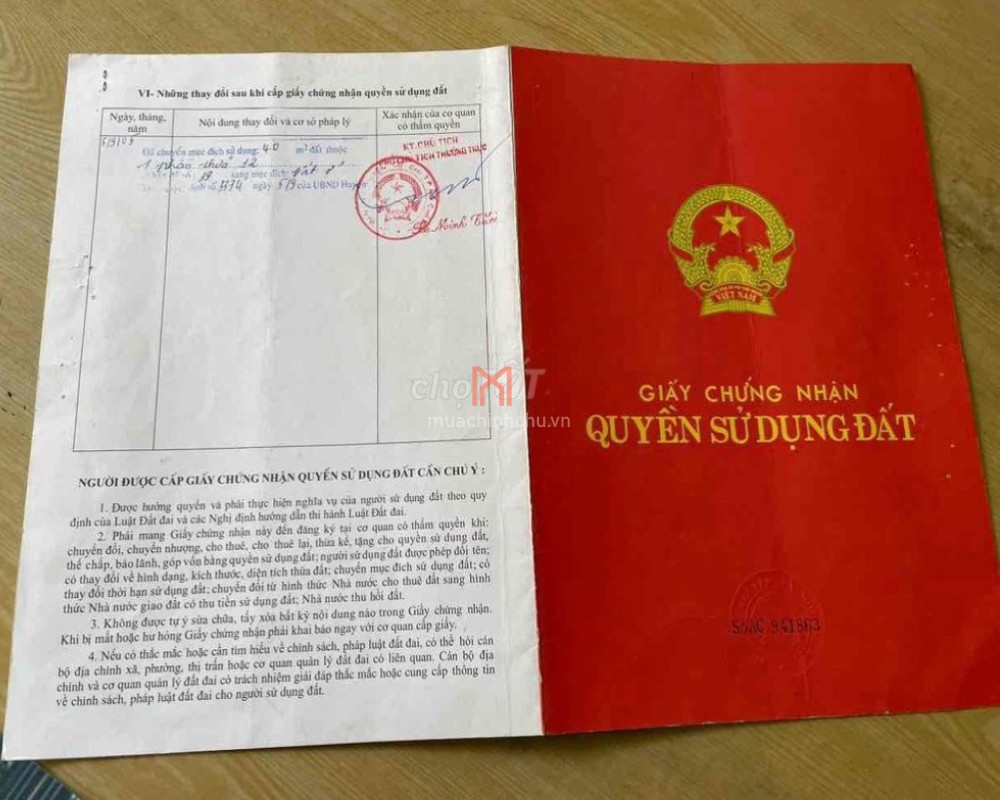 VI- Những thay đổi sau khi cấp giấy chứng nhận quyền sử dụng đất
Ngày, tháng, năm
Nội dung thay đổi và cơ sở pháp lý
Xác nhận của cơ quan có thẩm quyền
Đã chuyển mục đích sử dụng: 40 m² đất thuộc
1 phần thửa 12
19 sang mục đích: đất ở
ngày 5/9 của UBND Huyện
KT.CHỦ TỊCH
TỊCH THƯỜNG TRỰC
Minh
NGƯỜI ĐƯỢC CẤP GIẤY CHỨNG NHẬN QUYỀN SỬ DỤNG ĐẤT CẦN CHÚ Ý :
1. Được hưởng quyền và phải thực hiện nghĩa vụ của người sử dụng đất theo quy
định của Luật Đất đai và các Nghị định hướng dẫn thi hành Luật Đất đai.
2. Phải mang Giấy chứng nhận này đến đăng ký tại cơ quan có thẩm quyền khi:
chuyển đổi, chuyển nhượng, cho thuê, cho thuê lại, thừa kế, tặng cho quyền sử dụng đất,
thế chấp, bảo lãnh, góp vốn bằng quyền sử dụng đất; người sử dụng đất được phép đổi tên;
có thay đổi về hình dạng, kích thước, diện tích thửa đất; chuyển mục đích sử dụng đất; có
thay đổi thời hạn sử dụng đất; chuyển đổi từ hình thức Nhà nước cho thuê đất sang hình
thức Nhà nước giao đất có thu tiền sử dụng đất; Nhà nước thu hồi đất.
3. Không được tự ý sửa chữa, tẩy xóa bất kỳ nội dung nào trong Giấy chứng nhận.
Khi bị mất hoặc hư hỏng Giấy chứng nhận phải khai báo ngay với cơ quan cấp giấy.
4. Nếu có thắc mắc hoặc cần tìm hiểu về chính sách, pháp luật đất đai, có thể hỏi cán
bộ địa chính xã, phường, thị trấn hoặc cơ quan quản lý đất đai có liên quan. Cán bộ địa
chính và cơ quan quản lý đất đai có trách nhiệm giải đáp thắc mắc hoặc cung cấp thông tin
về chính sách, pháp luật đất đai cho người sử dụng đất.
VIỆT NAM
GIẤY CHỨNG NHẬN
QUYỀN SỬ DỤNG ĐẤT
941563
chợTỐT
muachinhchu.vn